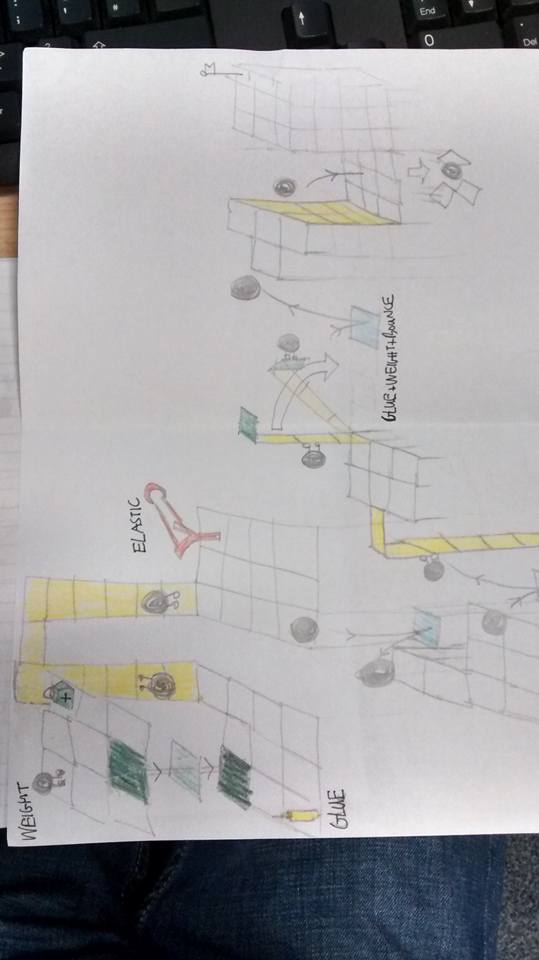 WEIGHT
GLUE
ELASTIC
GLUE+WEIGHT+BOUNCE
+
End
0
Del